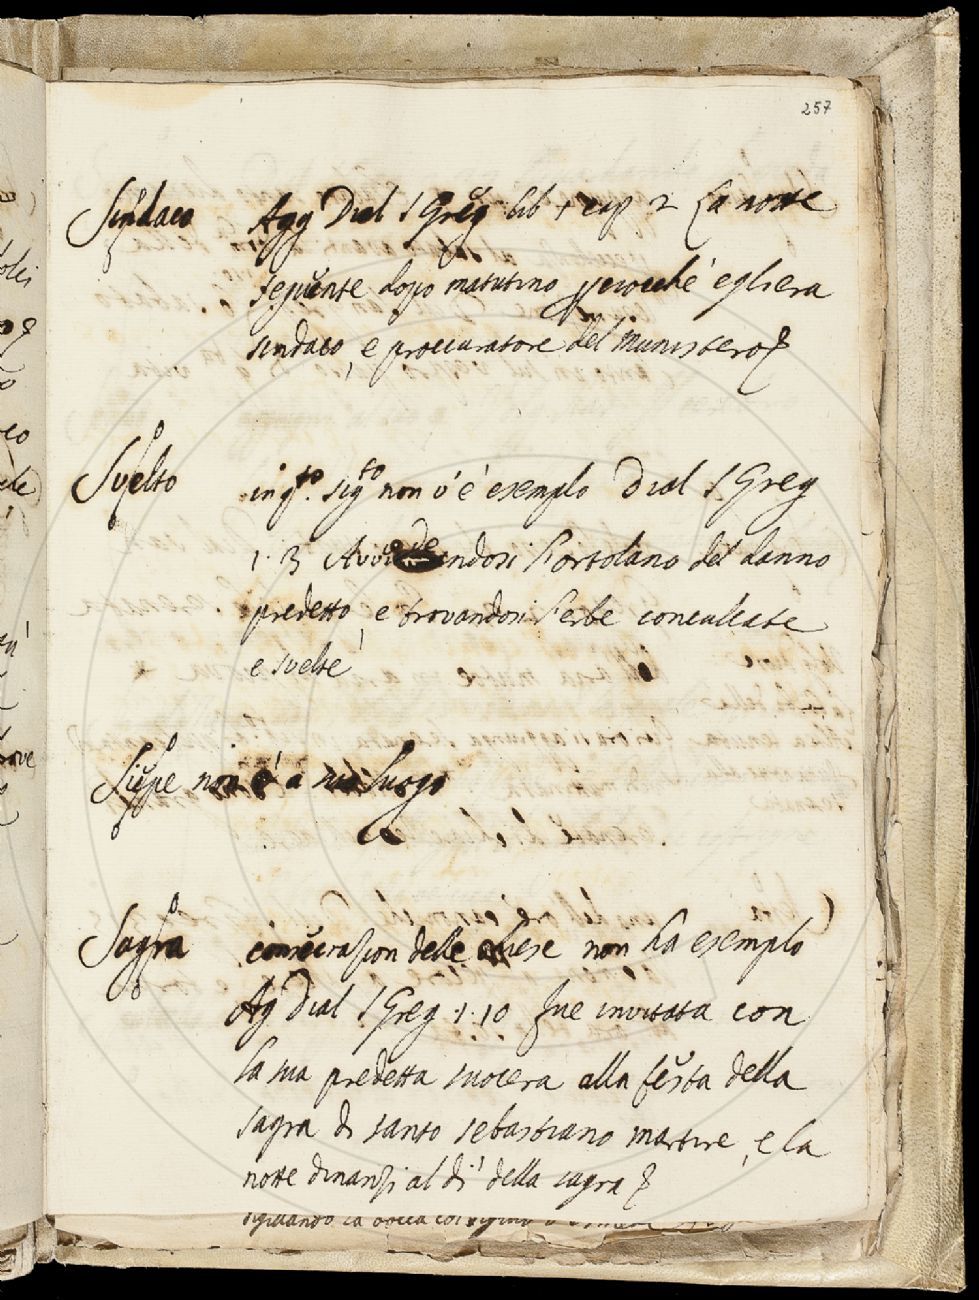 257
Sindaco Agg Dial S Greg lib 1 cap 2 La notte
seguente dopo matutino perocché egli era
sindaco, e proccuratore del munistero
Svelto in q.to sig.to non v'é esemplo Dial S Greg
1. 3 Avvedendosi l'ortolano del danno
predetto, e trovandosi l'erbe conculcate
e svelte
Siepe non é a suo luogo
Sagra consecrazion delle chiese non ha esemplo
Ag Dial S Greg. 1. 10 fue invitata con
la sua predetta suocera alla festa della
sagra di santo sebastiano martire, e la
notte dinanzi al dí della sagra